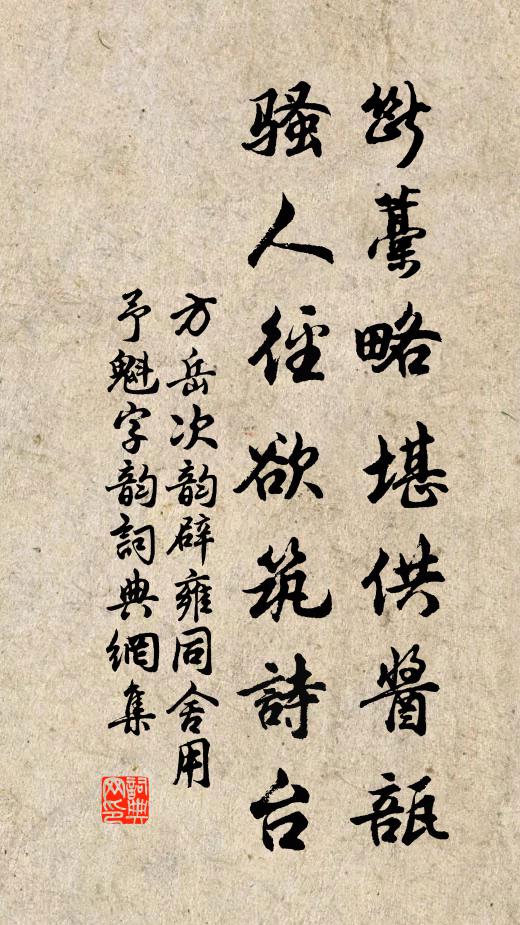 断藁略堪供醬瓿
騷人徑欲筑詩台
方岳次韵辟雍同舍用
予魁字韵詞典網集
詞典
网印